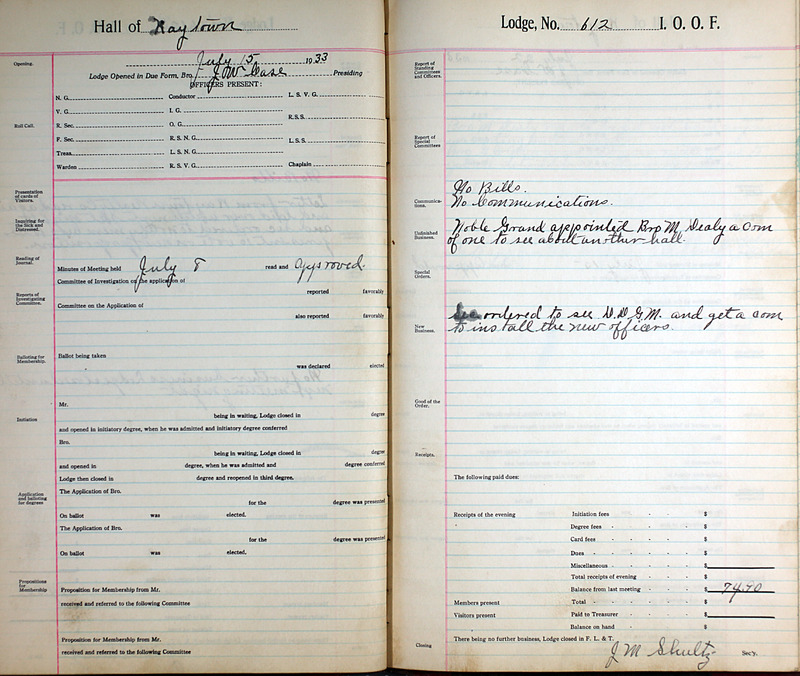 Hall of Raytown
July 15 1933
Opening.
Lodge Opened in Due Form, Bro. J W Case Presiding
OFFICERS PRESENT:
N. G. Conductor L. S. V. G.
V. G. I. G. R.S.S.
Roll Call.
R. Sec. O. G.
F. Sec. R. S. N. G. L.S.S.
Treas. L. S. N. G.
Warden R. S. V. G. Chaplain
Presentation of cards of Visitors.
Inquiring for the Sick and Distressed.
Reading of Journal.
Minutes of Meeting held July 8 read and approved.
Committee of Investigation on the application of
reported favorably
Reports of Investigating Committee.
Committee on the Application of
also reported favorably
Balloting for Membership.
Ballot being taken
was declared elected
Mr.
being in waiting, Lodge closed in degree
Initiation
and opened in initiatory degree, when he was admitted and initiatory degree conferred
Bro.
being in waiting, Lodge closed in degree
and opened in degree, when he was admitted and degree conferred
Lodge then closed in degree and reopened in third degree.
Application and balloting for degrees
The Application of Bro.
for the degree was presented
On ballot was elected.
The Application of Bro.
for the degree was presented
On ballot was elected.
Propositions for Membership
Proposition for Membership from Mr.
received and referred to the following Committee
Proposition for Membership from Mr.
received and referred to the following Committee
Lodge, No. 612 I. O. O. F.
Report of Standing Committees and Officers.
Report of Special Committees
No Bills.
Communications.
No Communications.
Unfinished Business.
Noble Grand appointed Bro M, Dealy a com
of one to see about another hall.
Special Orders.
New Business.
Sec ordered to see D.D.G.M. and get a com
to install the new officers.
Good of the Order.
Receipts.
The following paid dues:
Receipts of the evening Initiation fees - - - $
Degree fees - - - - $
Card fees - - - - $
Dues - - - - - $
Miscellaneous - - - $
Total receipts of evening - - - $
Balance from last meeting - - - $ 74.70
Members present Total - - - - - $
Visitors present Paid to Treasurer - - - $
Balance on hand - - - $
Closing
There being no further business, Lodge closed in F. L. & T.
J M Shultz Sec'y.